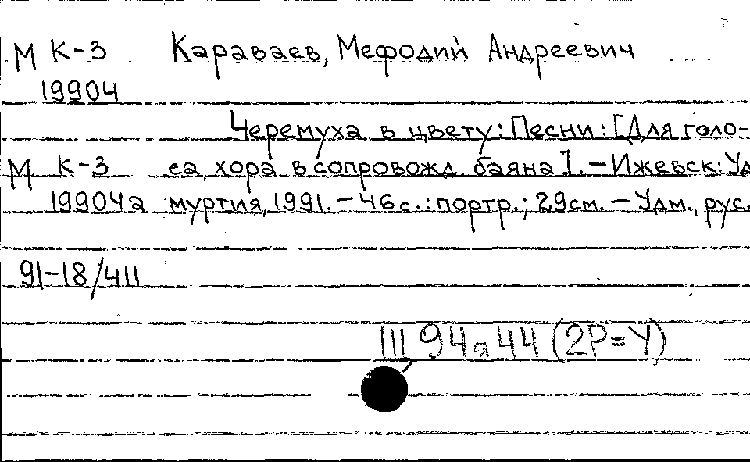 М К-3 Караваев, Мефодий Андреевич
19904
Черемуха в цвету: Песни: [Для голо-
М К-3 са, хора в сопровожд. баяна]. – Ижевск: Уд
19904а муртия, 1991. – 46 с.: портр.; 29 см. – Удм., рус.
91-18/411
III 94а 44 (2Р=У)